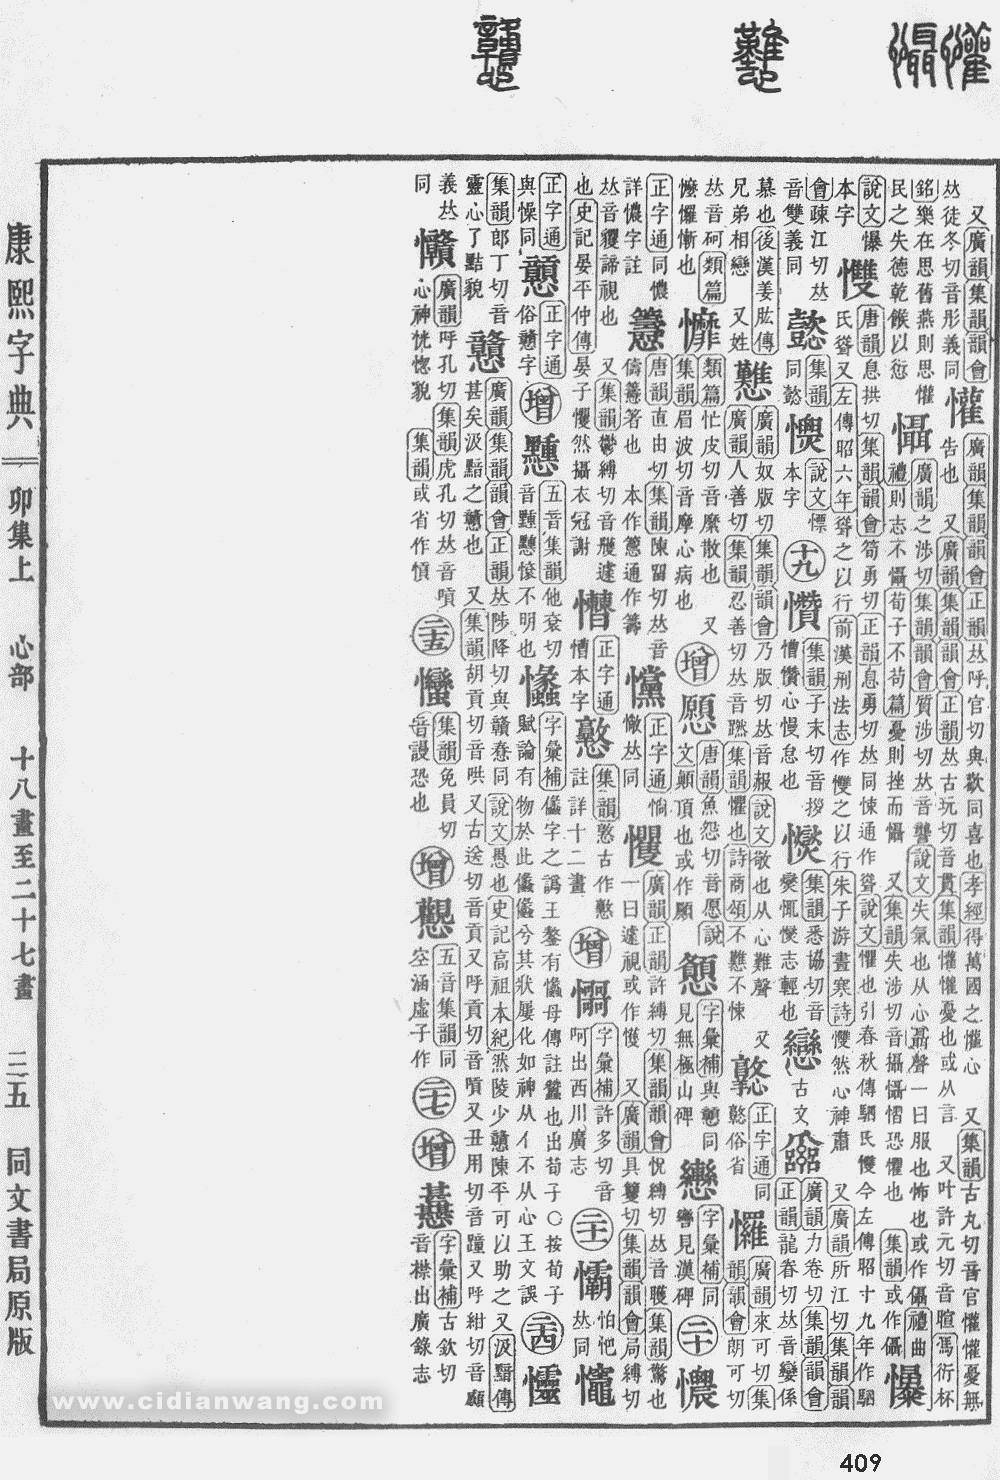 又廣韻集韻韻會
𠀤徒冬切音彤義同
懽
廣韻集韻韻會正韻𠀤呼官切與歡同喜也孝經得萬國之懽心 又集韻古丸切音官懽懽憂無
告也 又廣韻集韻韻會正韻𠀤古玩切音貫集韻懽懽憂也或从言 又叶許元切音暄馮衍杯
銘樂在思舊燕則思懽
民之失德乾餱以愆
懾
廣韻之涉切集韻韻會質涉切𠀤音讋說文失氣也从心聶聲一曰服也怖也或作㒤禮曲
禮則志不懾荀子不苟篇憂則挫而懾 又集韻失涉切音攝懾慴恐懼也 集韻或作㒤
懪
說文
本字
𢥠
唐韻息拱切集韻韻會筍勇切正韻息勇切𠀤同悚通作聳說文懼也引春秋傳駟氏𢥠今左傳昭十九年作駟
氏聳又左傳昭六年聳之以行前漢刑法志作𢥠之以行朱子游晝寒詩𢥠然心神肅 又廣韻所江切集韻韻
會疎江切𠀤
音雙義同
集韻
同懿
說文慓
本字
十九
集韻子末切音拶
心慢怠也
集韻悉協切音
燮㥦 志輕也
戀
古文
廣韻力卷切集韻韻會
正韻龍眷切𠀤音孌係
慕也後漢姜肱傳
兄弟相戀 又姓
戁
廣韻奴版切集韻韻會乃版切𠀤音赧說文敬也从心難聲 又
廣韻人善切集韻忍善切𠀤音蹨集韻懼也詩商頌不戁不悚
正字通
俗省同
㦬
廣韻來可切集
韻韻會朗可切
𠀤音砢類篇
懡㦬慚也
類篇忙皮切音縻散也 又
集韻眉波切音摩心病也
增
唐韻魚怨切音愿說
文顚頂也或作願
字彙補與憩同
見無極山碑
字彙補同
轡見漢碑
二十
正字通同憹
詳憹字註
唐韻直由切集韻陳留切𠀤音
儔 著也 本作懤通作籌
戃
正字通惝
𠀤同
戄
廣韻正韻許縛切集韻韻會怳縛切𠀤音矆集韻驚也
一曰遽視或作 又廣韻具籰切集韻韻會局縛切
𠀤音䝔諦視也 又集韻鬱縛切音雘遽
也史記晏平仲傳晏子戄然攝衣冠謝
正字通
慒本字
集韻憝古作
註詳十二畫
增
字彙補許多切音
呵出西川廣志
二十一
𠀤同
正字通
與懆同
正字通
俗戇字
增
五音集韻他袞切
不明也
字彙補儡字之譌王鏊有 母傳註蠶也出荀子○按荀子
賦論有物於此 兮其狀屢化如神从亻不从心王文誤
二十四
集韻郎丁切音
靈心了點貌
戇
廣韻集韻韻會正韻𠀤陟降切與贛惷同說文愚也史記高祖本紀然陵少戇陳平可以助之又汲黯傳
甚矣汲黯之戇也 又集韻胡貢切音哄又古送切音貢又呼貢切音 又丑用切音蹱又呼紺切音顑
義𠀤
同
廣韻呼孔切集韻虎孔切𠀤音嗊
心神恍惚貌 集韻或省作愩
二十五
集韻免員切
音謾恐也
增
五音集韻同
空涵虛子作
二十七
增
字彙補古欽切
音襟出廣錄志
康熙字典 卯集上 心部 十八畫至二十七畫 三五 同文書局原版
www.cidianwang.com
409